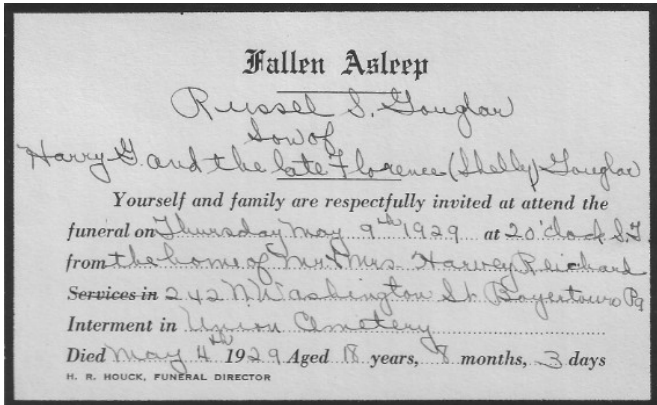 Fallen Asleep
Russel S. Gouglar
Son of
Harry G. and the late Florence (Shelly) Gouglar
Yourself and family are respectfully invited at attend the
funeral on Thursday May 9th 1929 at 2 O'clock S.T.
from the home of Mr & Mrs Harvey Reichard
Services in 242 N. Washington St. Boyertown Pa
Interment in Union Cemetery
Died May 4th 1929 Aged 18 years, 8 months, 3 days
H. R. HOUCK, FUNERAL DIRECTOR